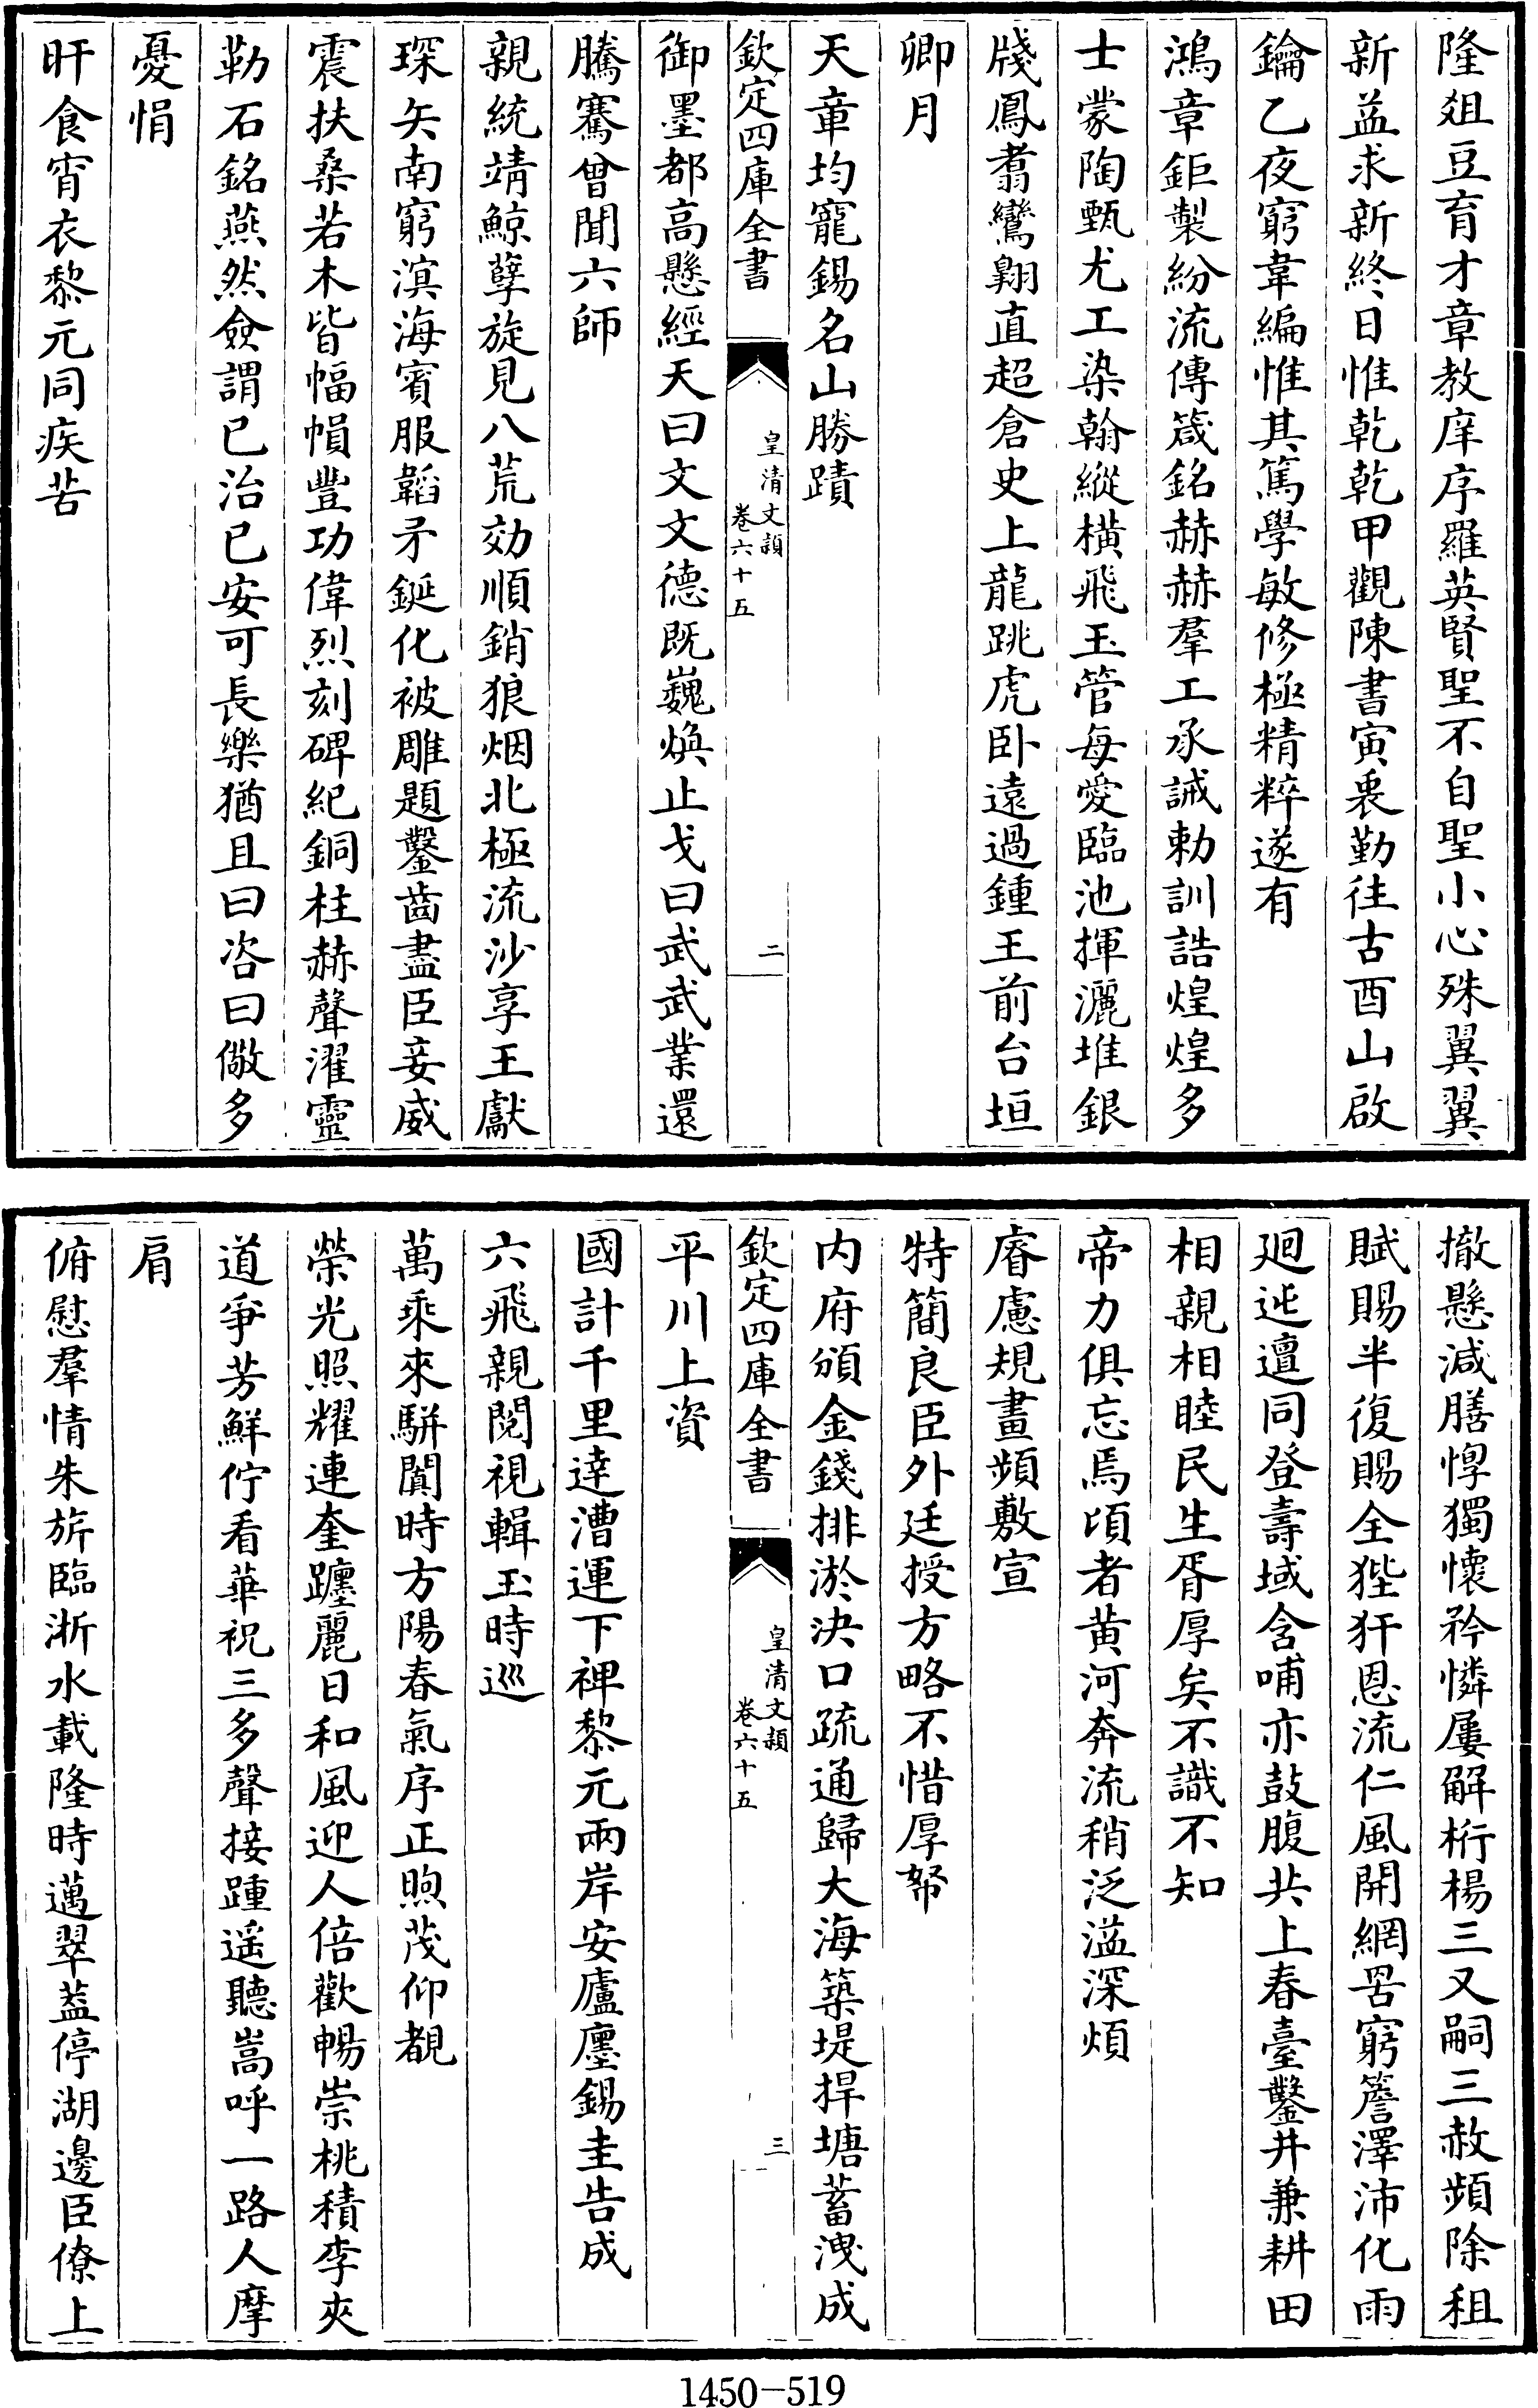 隆爼豆育才章教庠序羅英賢聖不自聖小心殊翼翼
新益求新終日惟乾乾甲觀陳書寅衷勤往古酉山啟
鑰乙夜窮韋編惟其篤學敏修極精粹遂有
鴻章鉅製紛流傳箴銘赫赫羣工承誡勅訓誥煌煌多
士蒙陶甄尤工染翰縱横飛玉管每愛臨池揮灑堆銀
牋鳳翥鸞翺直超倉史上龍跳虎卧遠過鍾王前台垣
卿月
天章均寵錫名山勝蹟
欽定四庫全書
皇清文頴
卷六十五
二
御墨都高懸經天曰文文德既巍焕止戈曰武武業還
騰騫曾聞六師
親統靖鯨孽旋見八荒効順銷狼烟北極流沙享王獻
琛矢南窮溟海賓服韜矛鋋化被雕題鑿齒盡臣妾威
震扶桑若木皆幅幀豐功偉烈刻碑紀銅柱赫聲濯靈
勒石銘燕然僉謂已治已安可長樂猶且曰咨曰儆多
憂悁
旰食宵衣黎元同疾苦
撤懸減膳惸獨懷矜憐屢解桁楊三又嗣三赦頻除租
賦賜半復賜全狴犴恩流仁風開網罟窮簷澤沛化雨
廻迍邅同登壽域含哺亦鼓腹共上春臺鑿井兼耕田
相親相睦民生胥厚矣不識不知
帝力俱忘焉頃者黄河奔流稍泛溢深煩
睿慮規畫頻敷宣
特簡良臣外廷授方略不惜厚帑
内府頒金錢排淤決口疏通歸大海築堤捍塘蓄洩成
欽定四庫全書
皇清文頴
卷六十五
三
平川上資
國計千里達漕運下裨黎元兩岸安廬廛錫圭告成
六飛親閲視輯玉時巡
萬乘來駢闐時方陽春氣序正煦茂仰覩
榮光照耀連奎躔麗日和風迎人倍歡暢崇桃積李夾
道爭芳鮮佇看華祝三多聲接踵遥聽嵩呼一路人摩
肩
俯慰羣情朱旂臨浙水載隆時邁翠葢停湖邊臣僚上
1450-519